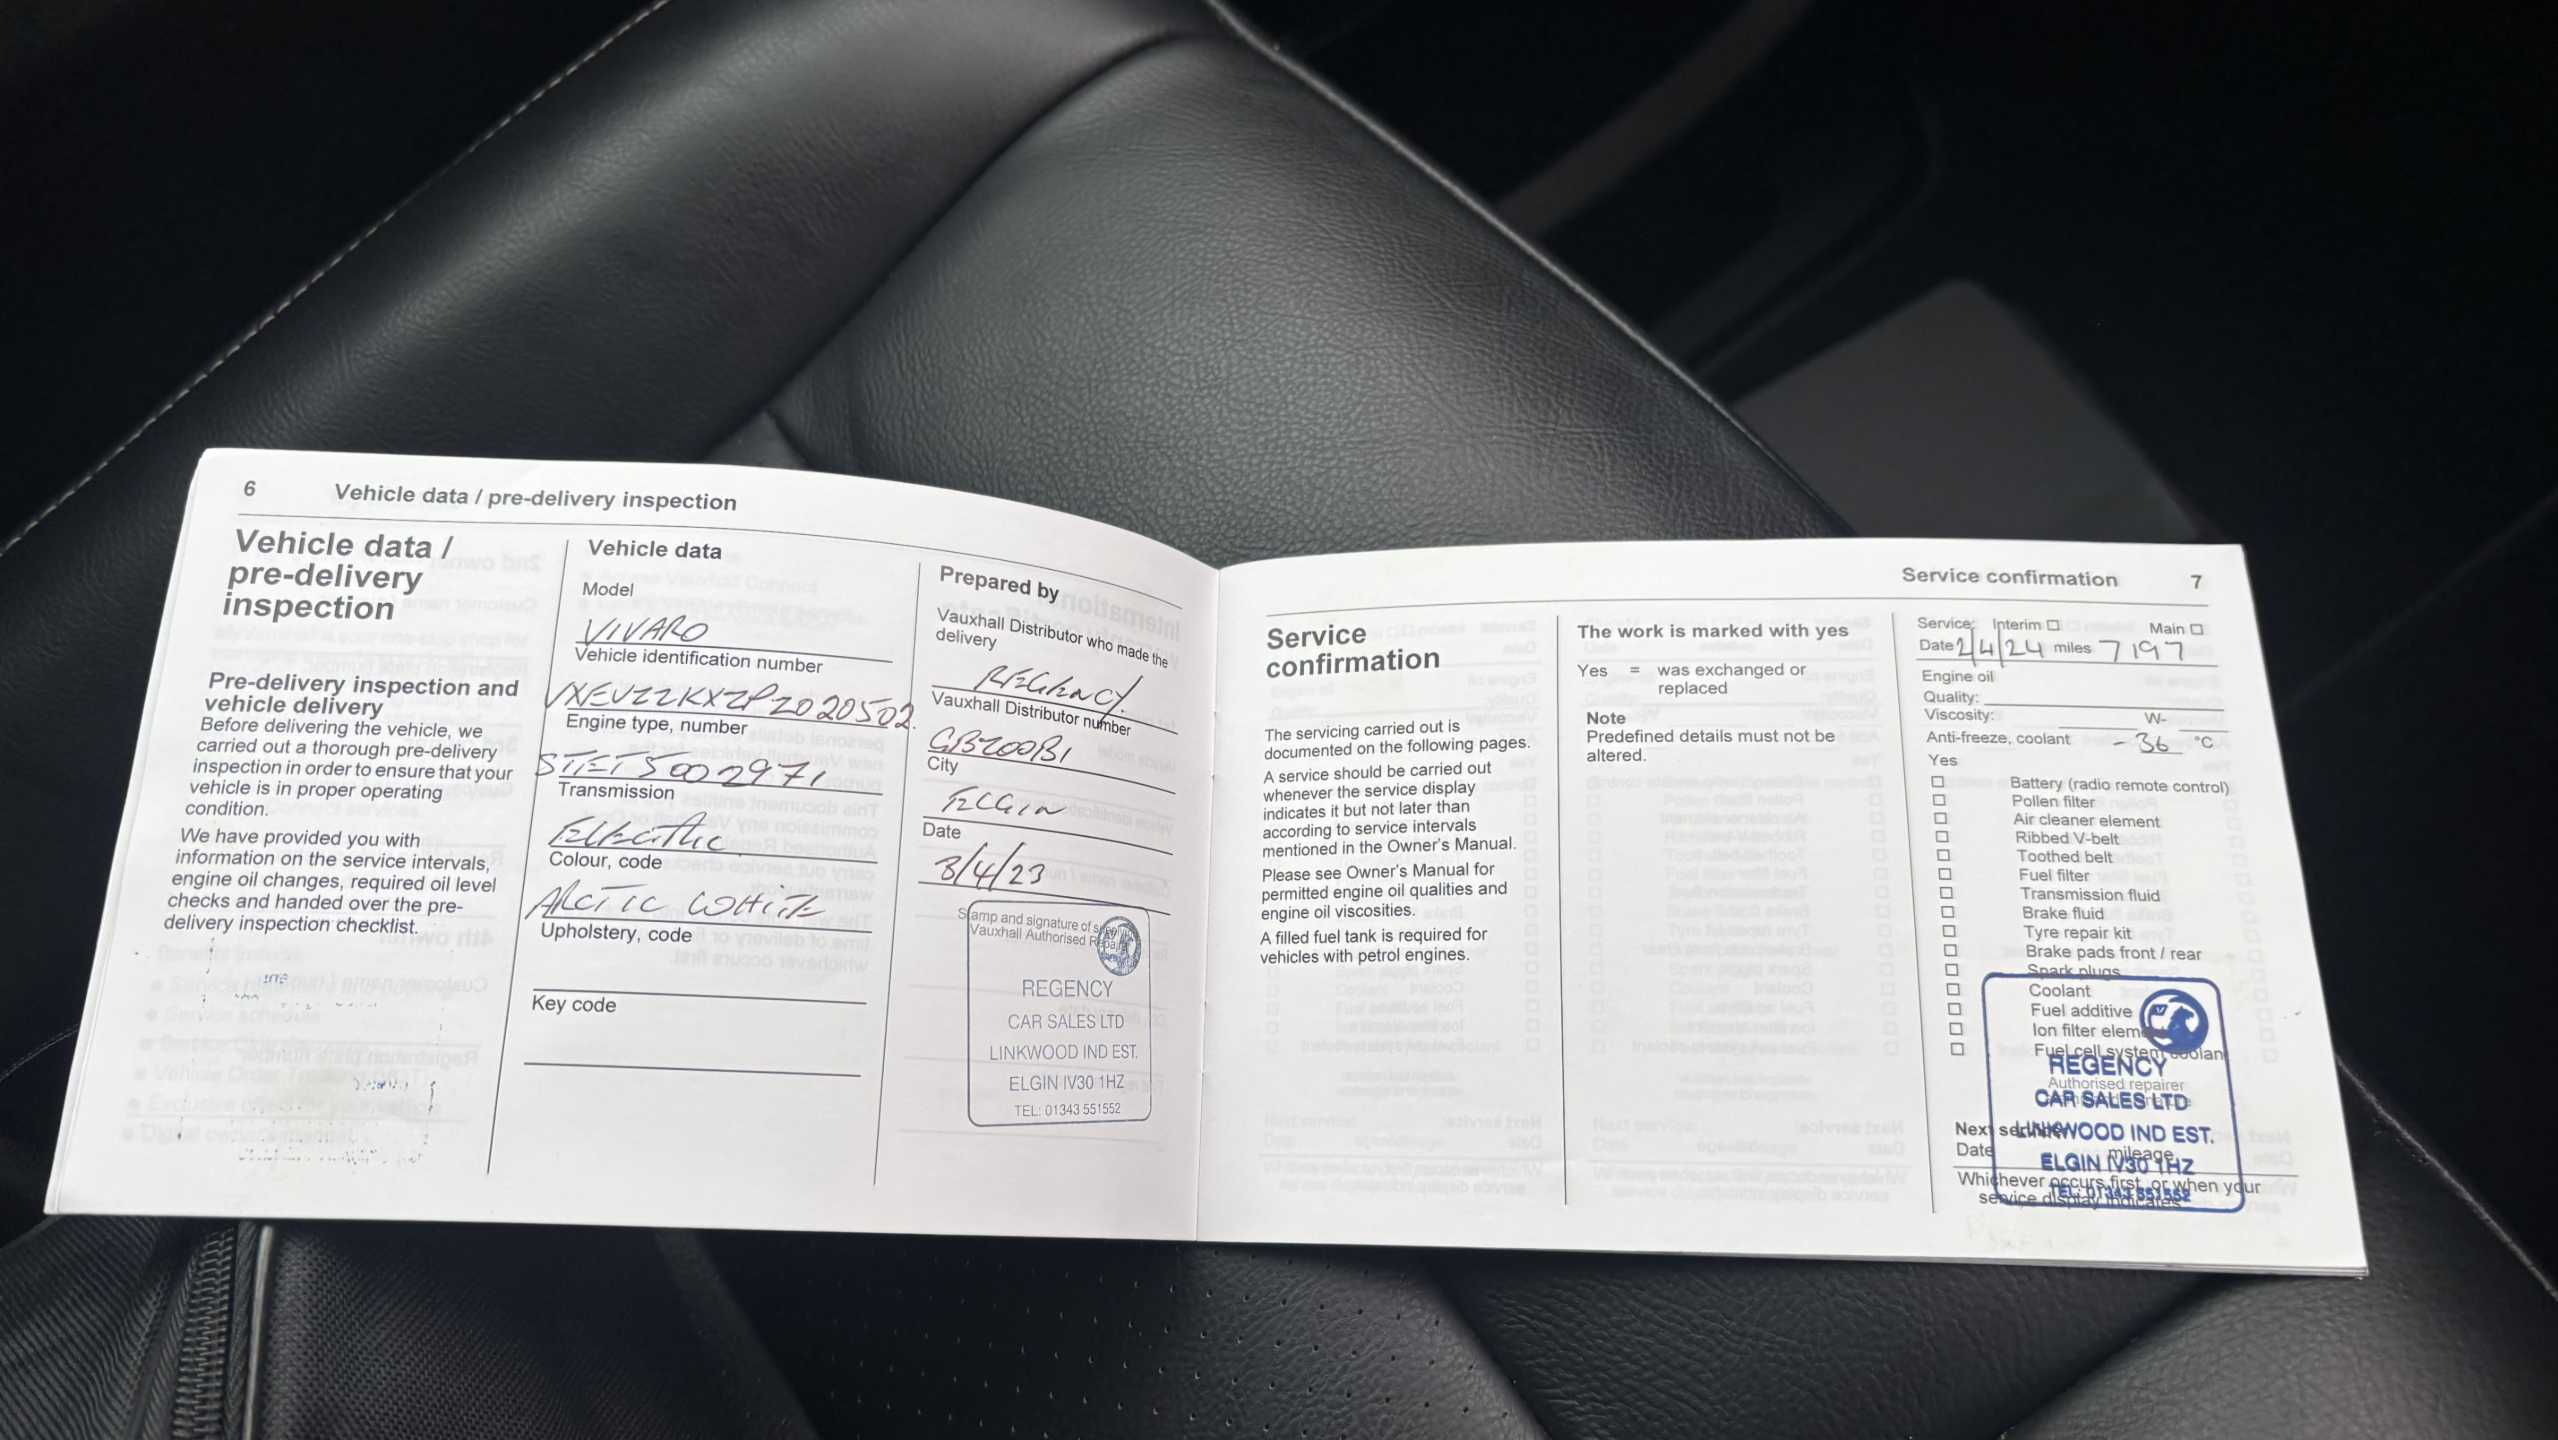 6 Vehicle data / pre-delivery inspection
Vehicle data /
pre-delivery
inspection
Pre-delivery inspection and
vehicle delivery
Before delivering the vehicle, we
carried out a thorough pre-delivery
inspection in order to ensure that your
vehicle is in proper operating
condition.
We have provided you with
information on the service intervals,
engine oil changes, required oil level
checks and handed over the pre-
delivery inspection checklist.
Vehicle data
Model
VIVARO
Vehicle identification number
VXEVZZKXZPZ020502.
Engine type, number
5002971
Transmission
ELECTRIC
Colour, code
ARCTIC WHITE
Upholstery, code
Key code
Prepared by
Vauxhall Distributor who made the
delivery
REGENCY.
Vauxhall Distributor number
GB200B1
City
ELGIN
Date
3/4/23
Stamp and signature of
Vauxhall Authorised Repairer
REGENCY
CAR SALES LTD
LINKWOOD IND EST.
ELGIN IV30 1HZ
TEL: 01343 551552
Service confirmation 7
Service
confirmation
The servicing carried out is
documented on the following pages.
A service should be carried out
whenever the service display
indicates it but not later than
according to service intervals
mentioned in the Owner's Manual.
Please see Owner's Manual for
permitted engine oil qualities and
engine oil viscosities.
A filled fuel tank is required for
vehicles with petrol engines.
The work is marked with yes
Yes = was exchanged or
replaced
Note
Predefined details must not be
altered.
Service: Interim Main
Date 2/4/24 miles 7197
Engine oil
Quality:
Viscosity: W-
Anti-freeze, coolant -36 °C
Yes
Battery (radio remote control)
Pollen filter
Air cleaner element
Ribbed V-belt
Toothed belt
Fuel filter
Transmission fluid
Brake fluid
Tyre repair kit
Brake pads front / rear
Spark plugs
Coolant
Fuel additive
Ion filter element
Fuel cell system coolant
REGENCY
Authorised repairer
CAR SALES LTD
LINKWOOD IND EST.
Next service
Date mileage
ELGIN IV30 1HZ
Whichever occurs first, or when your
service display indicates
TEL: 01343 551552